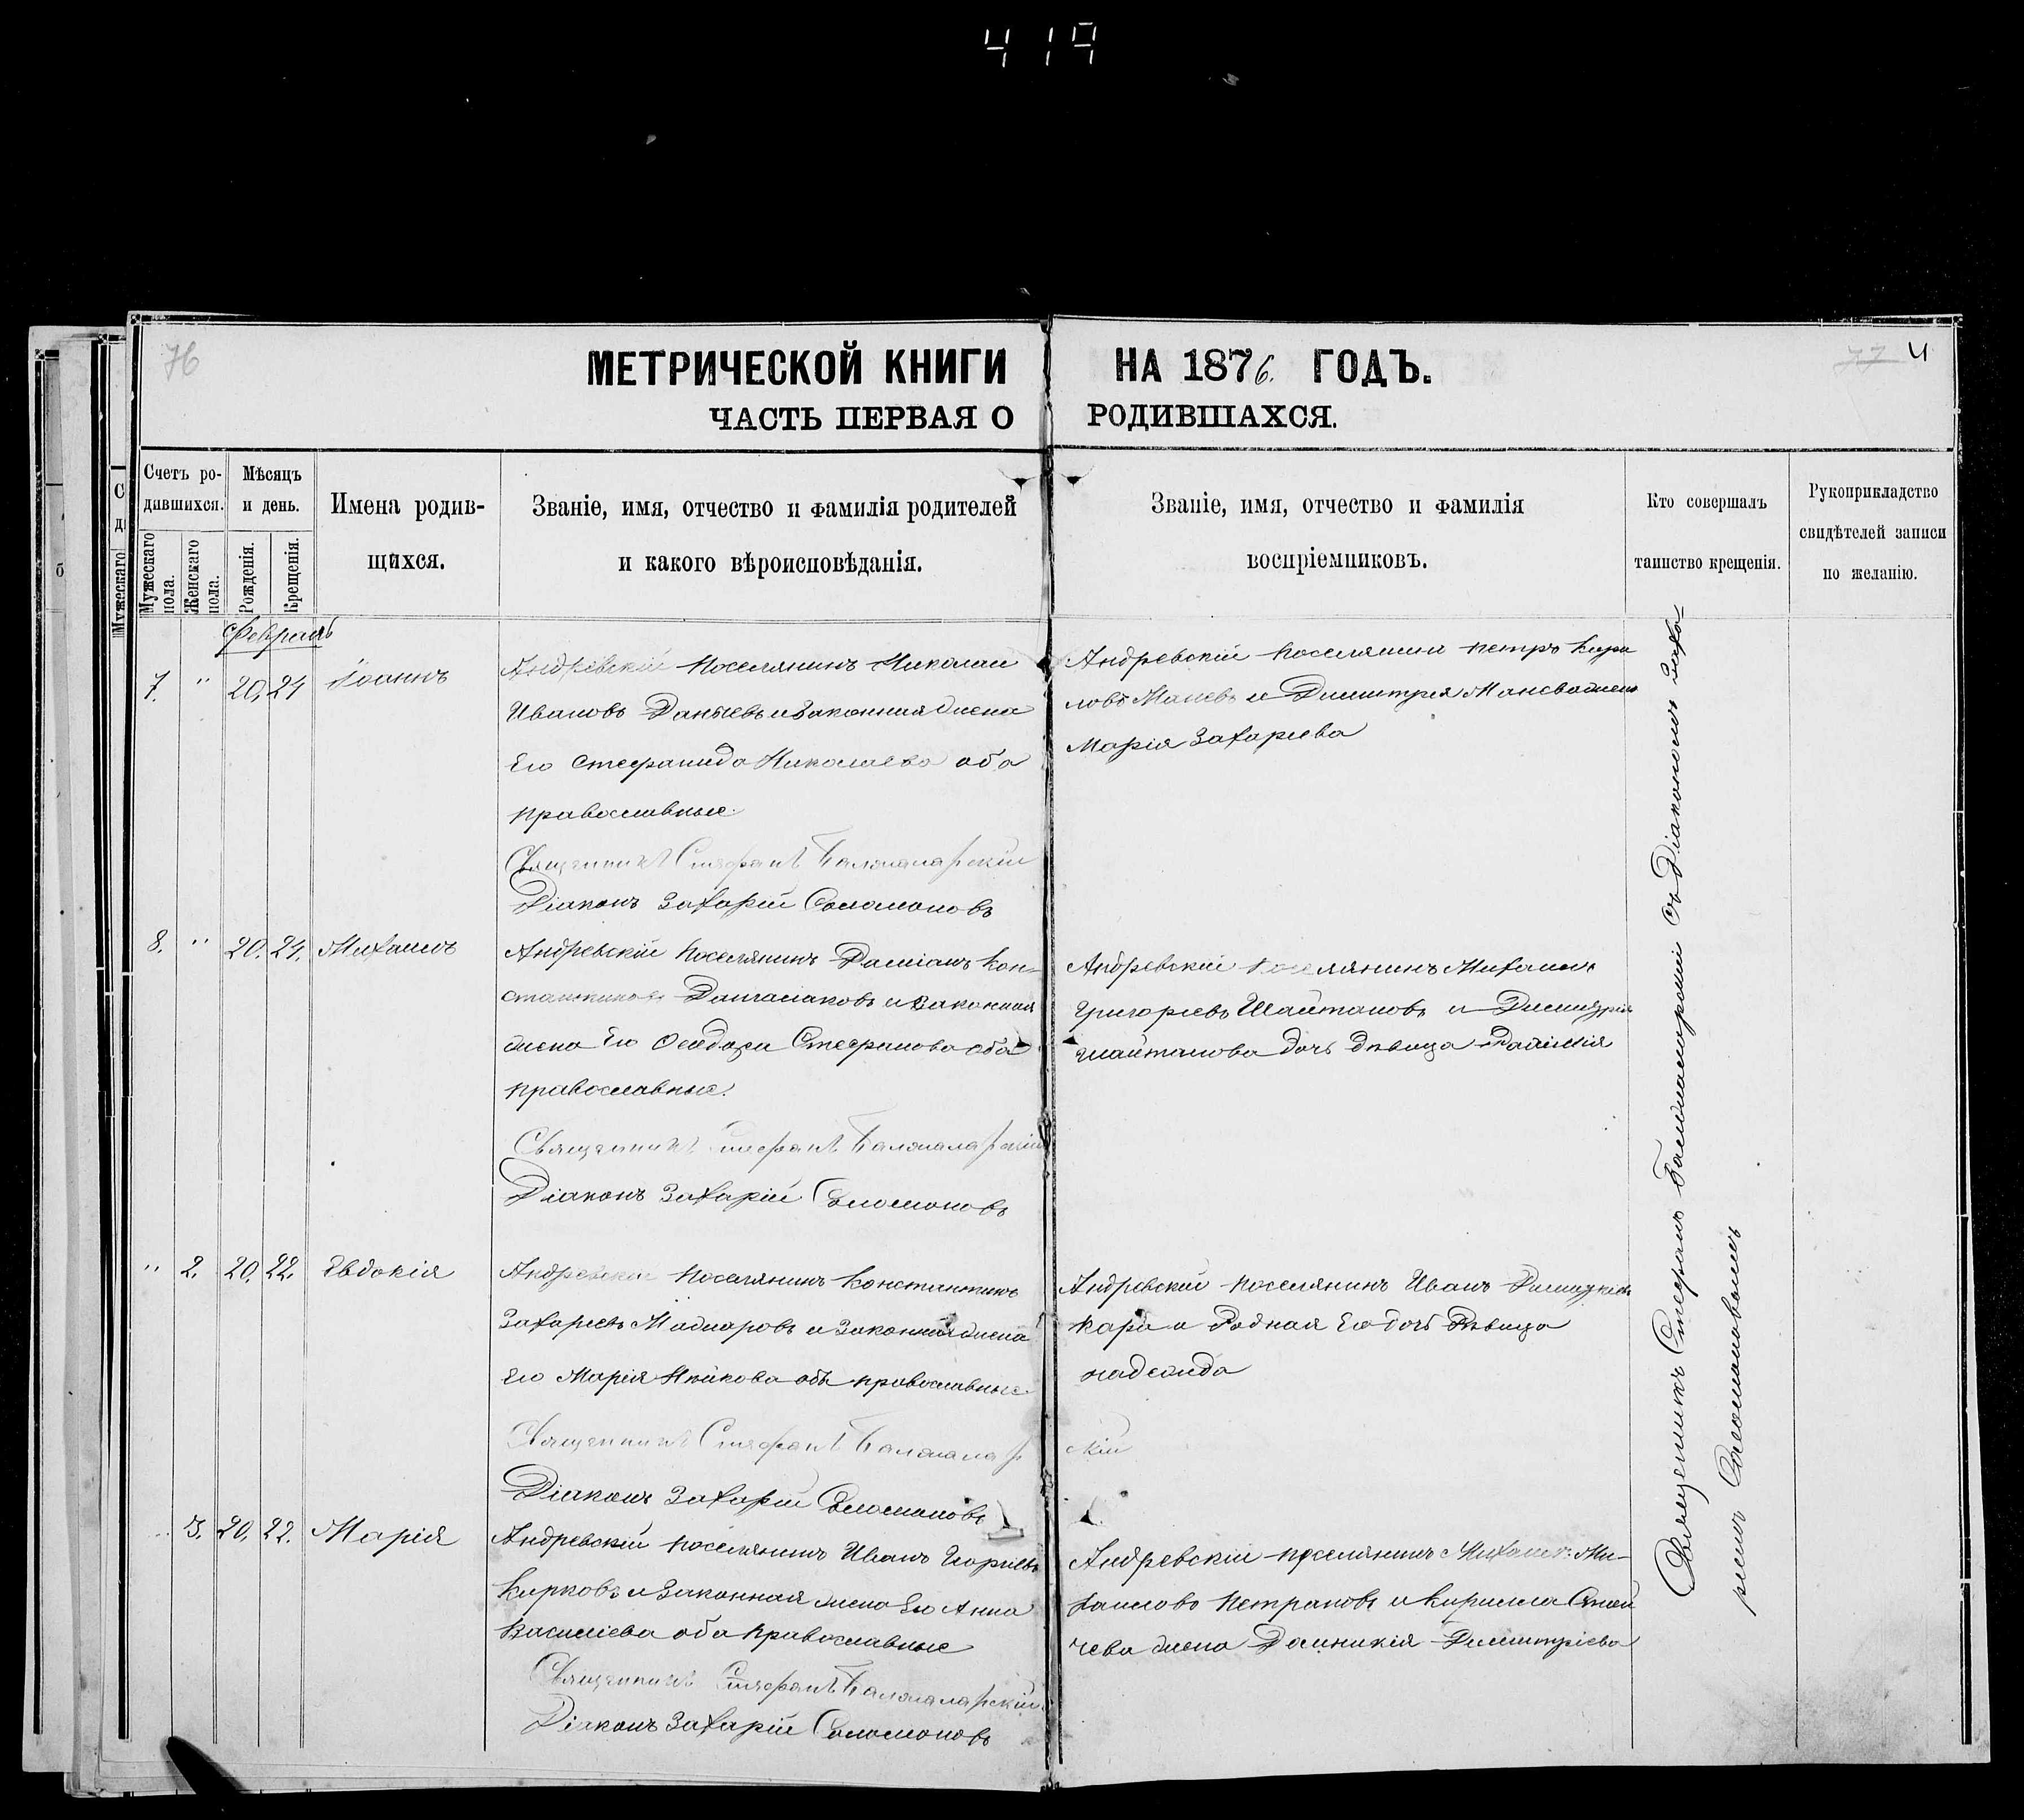 419
76
МЕТРИЧЕСКОЙ КНИГИ НА 1876. ГОДЪ.
77 4
ЧАСТЬ ПЕРВАЯ О РОДИВШАХСЯ.
Счетъ ро-
дившихся.
Мужескаго
пола.
Женскаго
пола.
Мѣсяцъ
и день.
Рожденія.
Крещенія.
Имена родив-
щихся.
Званіе, имя, отчество и фамилія родителей
и какого вѣроисповѣданія.
Званіе, имя, отчество и фамилія
воспріемниковъ.
Кто совершалъ
таинство крещенія.
Рукоприкладство
свидѣтелей записи
по желанію.
Февраль
7. " 20. 21 Іоаннъ
Андревскій поселянинъ Николай
Ивановъ и Законная жена
Его Стефанида Николаева оба
православные.
Священникъ Стефанъ Балжаларскій
Діаконъ Захарій Соломоновъ
Андревскій поселянинъ петръ Кири
ловъ Маневъ и Димитрия Манева жена
Марія Захариева
8. " 20. 21. Михаилъ
Андревскій поселянинъ Даміанъ Кон-
стантиновъ и Законная
жена Его Стефанова оба
православные.
Священникъ Стефанъ Балжаларскій
Діаконъ Захарій Соломоновъ
Андревскій поселянинъ Михаилъ
Григориевъ Шайтановъ и Димитрія
шайтанова дочь дѣвица
" 2. 20. 22. Евдокія
Андревскій поселянинъ Константинъ
Захариевъ Маджаровъ и Законная жена
Его Марія Нѣйкова оба православные.
Священникъ Стефанъ Балжаларскій
Діаконъ Захарій Соломоновъ
Андревскій поселянинъ Иванъ
Кара и Родная Его дочь Дѣвица
надежда
3. 20. 22. Марія
Андревскій поселянинъ Иванъ Георгиевъ
Кирковъ и Законная жена Его Анна
Василіева оба православные
Священникъ Стефанъ Балжаларскій
Діаконъ Захарій Соломоновъ
Андревскій поселянинъ Михаилъ Ми-
хаилово Петрановъ и Кирилла Стой
чева жена Домникія Димитріева
Священникъ Стефанъ Балжаларскій съ Діакономъ Заха-
ріемъ Соломоновымъ